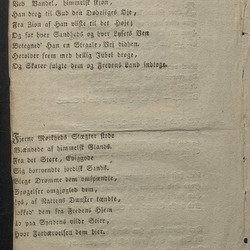 Ved Vandel, himmelsk skjøn,
Han drog til Gud den Dødeliges Øje,
Fra Zion af Han viiste til det Høje;
Og for hver Sandheds og hver Lysets Ven
Betegned' Han en Straale-Vej didhen.
Herolder frem med hellig Jubel droge,
Og Skarer fulgte dem og Fredens Land indtoge.
Fjerne Mørkheds Slægter stode
Blændede af himmelsk Glands.
Fra det Store, Eviggode
Sig bortvendte jordisk Sands.
Slege Drømme dem omsvævde,
Bøgelser omgjøgled dem,
lys, af Nattens Dunster tændte,
lokked' dem fra Fredens Hjem
In paa Syndens vilde Stier,
Hvor Fordærvelsen dem hier,